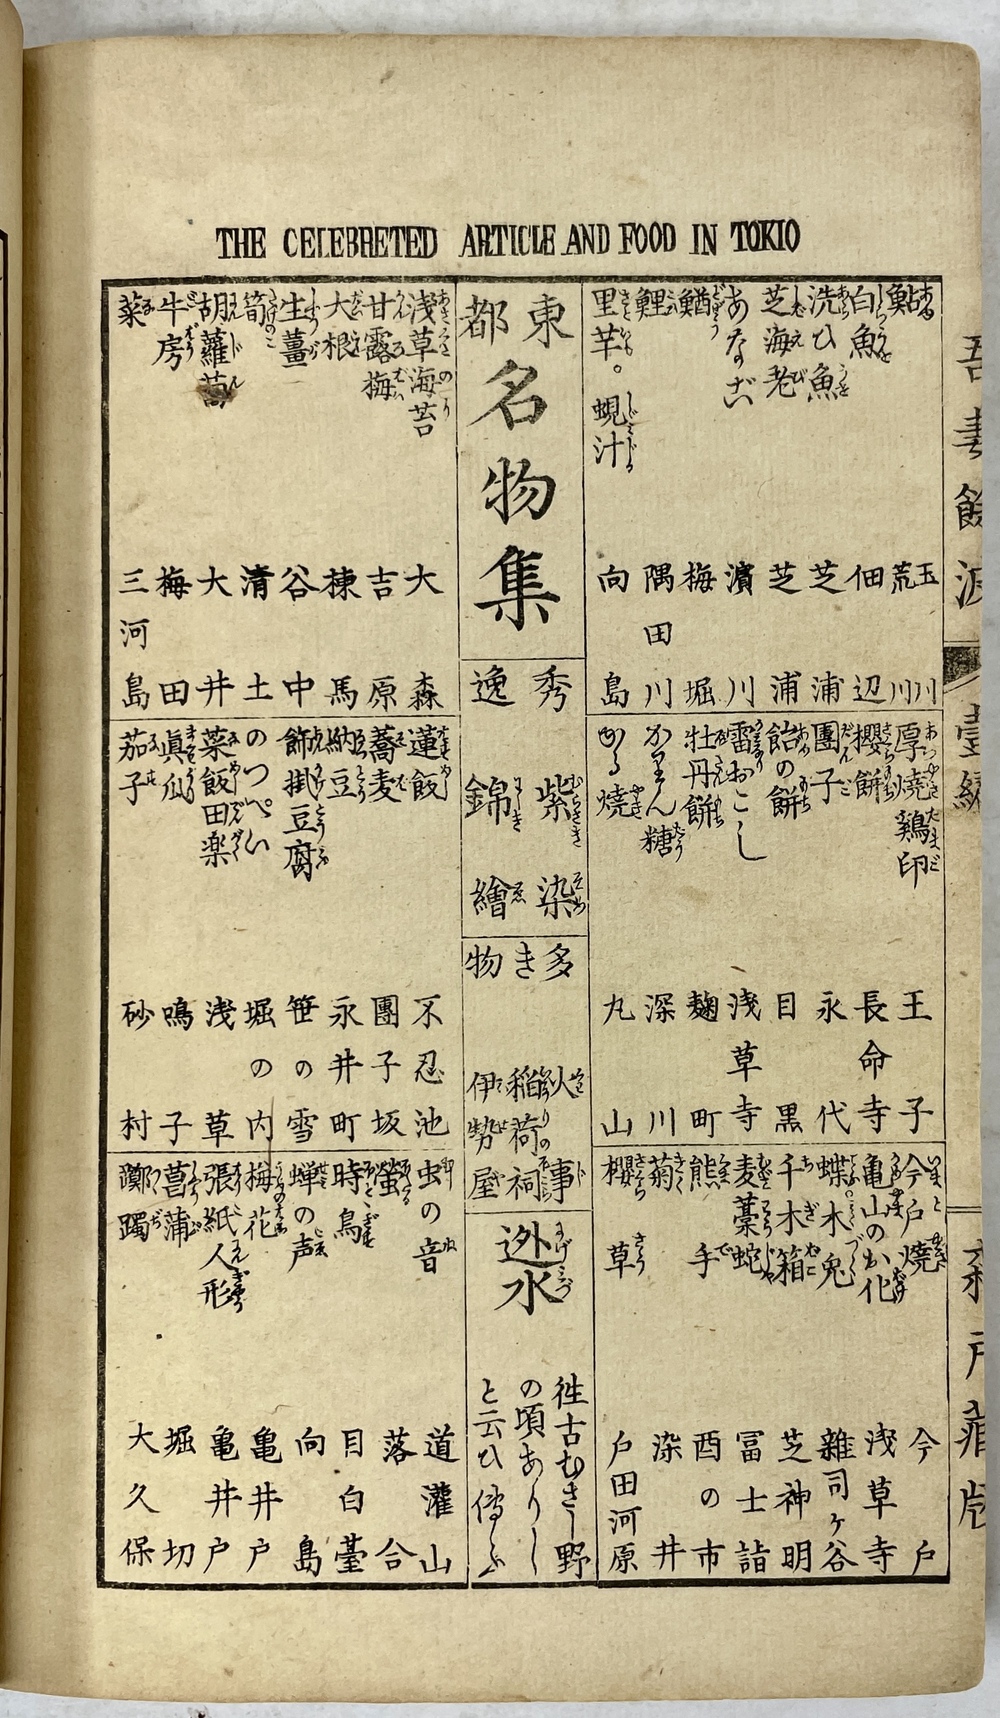 THE CELEBRETED ARTICLE AND FOOD IN TOKIO
鮎 玉川
荒川
白魚 佃辺
洗ひ魚 芝浦
芝海老 芝浦
あなご 濱川
鰌 梅堀
鯉 隅田川
里芋。蜆汁 向島
厚焼鶏卵 王子
櫻餅 長命寺
團子 永代
飴の餅 目黒
雷おこし 浅草寺
牡丹餅 麹町
かりん糖 深川
かる焼 丸山
今戸焼 今戸
亀山のお化 浅草寺
蝶木兎 雑司ヶ谷
千木箱 芝神明
麦藁蛇 冨士詣
熊手 酉の市
菊 染井
櫻草 戸田河原
東都
名物集
秀逸
紫染
錦繪
多き物
火事
稲荷祠
伊勢屋
迯水
徃古むさし野
の頃ありし
と云ひ傳ふ
浅草海苔 大森
甘露梅 吉原
大根 棟馬
生薑 谷中
筍 清土
胡蘿蔔 大井
牛房 梅田
菜 三河島
蓮飯 不忍池
蕎麦 團子坂
納豆 永井町
飾掛豆腐 笹の雪
のつぺい 堀の内
菜飯田楽 浅草
眞仙 鳴子
茄子 砂村
虫の音 道灌山
螢 落合
時鳥 目白臺
蝉の声 向島
梅花 亀井戸
張紙人形 亀井戸
菖蒲 堀切
躑躅 大久保